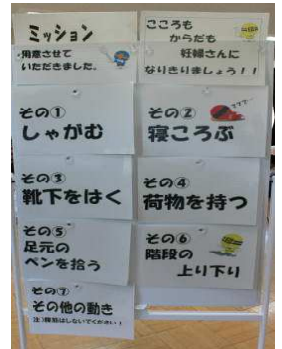 ミッション
用意させて
いただきました。
こころも
からだも
妊婦さんに
なりきりましょう!!
その①
しゃがむ
その②
寝ころぶ
その③
靴下をはく
その④
荷物を持つ
その⑤
足元の
ペンを拾う
その⑥
階段の
上り下り
その⑦
その他の動き